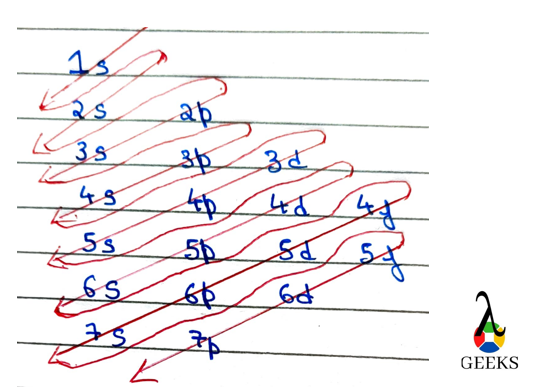 1s
2s 2p
3s 3p 3d
4s 4p 4d 4f
5s 5p 5d 5f
6s 6p 6d
7s 7p
λ
GEEKS